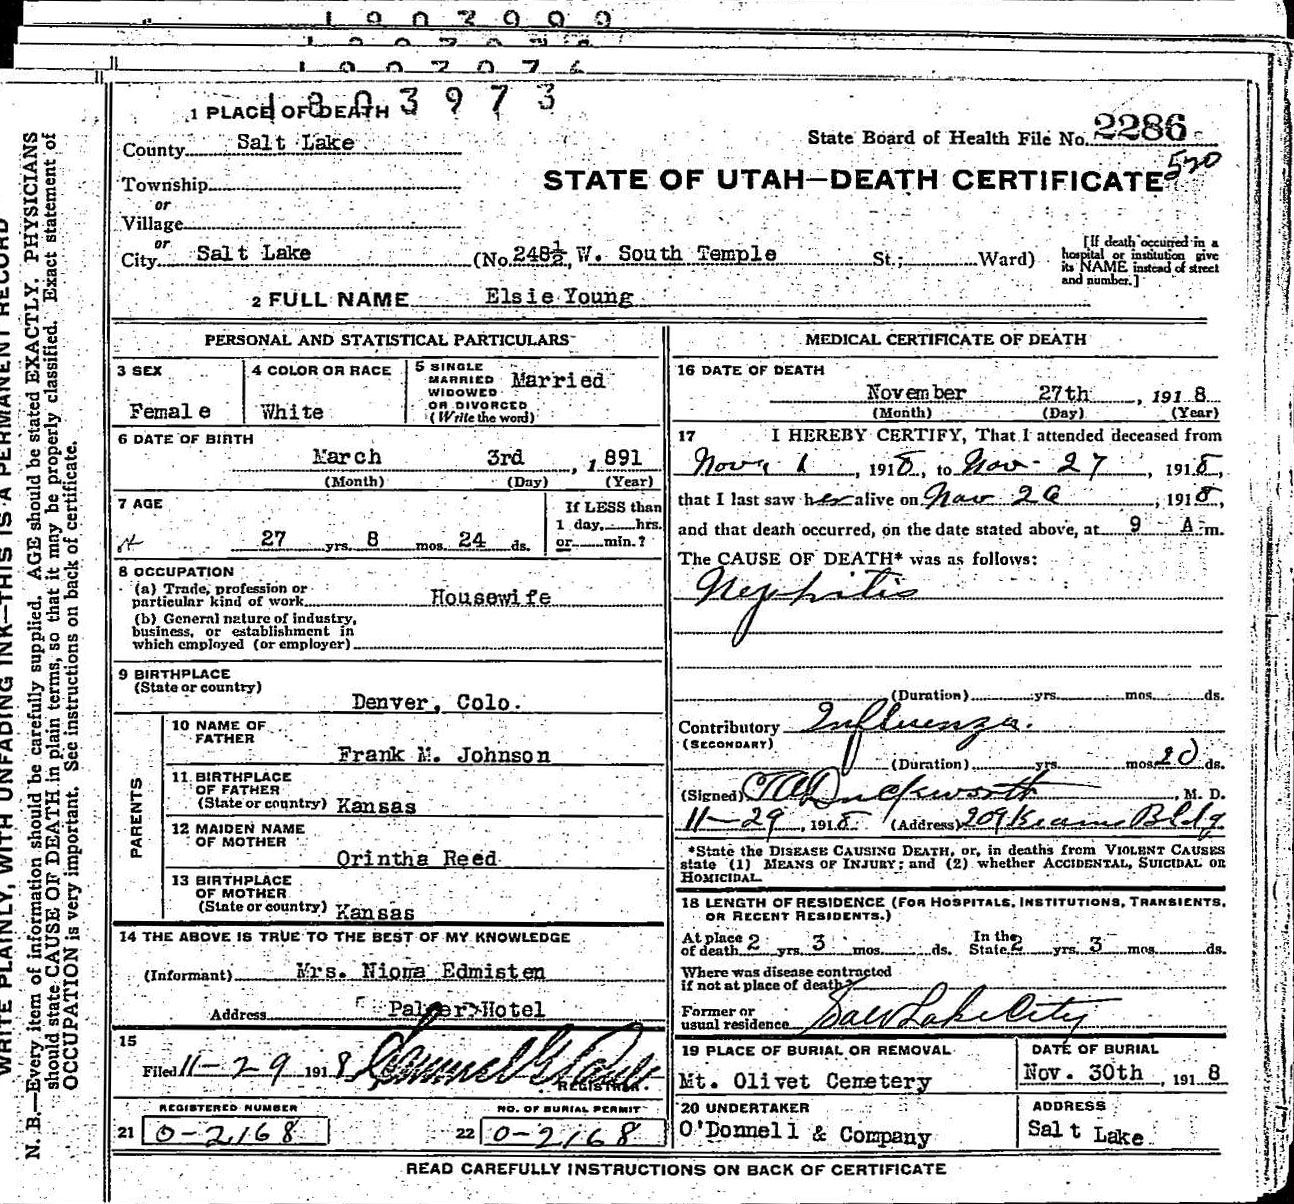 1002000
1002076
1003973
1 PLACE OF DEATH
County Salt Lake
State Board of Health File No. 2286
520
Township
or
Village
or
City Salt Lake (No. 248½, W. South Temple St.; Ward)
STATE OF UTAH—DEATH CERTIFICATE
[If death occurred in a
hospital or institution give
its NAME instead of street
and number.]
2 FULL NAME Elsie Young
PERSONAL AND STATISTICAL PARTICULARS
3 SEX
Female
4 COLOR OR RACE
White
5 SINGLE
MARRIED
WIDOWED
OR DIVORCED
(Write the word)
Married
6 DATE OF BIRTH
March 3rd, 1891
(Month) (Day) (Year)
7 AGE
27 yrs. 8 mos. 24 ds.
If LESS than
1 day, hrs.
or min.?
8 OCCUPATION
(a) Trade, profession or
particular kind of work Housewife
(b) General nature of industry,
business, or establishment in
which employed (or employer)
9 BIRTHPLACE
(State or country)
Denver, Colo.
PARENTS
10 NAME OF
FATHER
Frank M. Johnson
11 BIRTHPLACE
OF FATHER
(State or country) Kansas
12 MAIDEN NAME
OF MOTHER
Orintha Reed
13 BIRTHPLACE
OF MOTHER
(State or country) Kansas
14 THE ABOVE IS TRUE TO THE BEST OF MY KNOWLEDGE
(Informant) Mrs. Niona Edmisten
Address Palmer Hotel
15
Filed 11-29 1918
REGISTRAR.
REGISTERED NUMBER
21 0-2168
NO. OF BURIAL PERMIT
22 0-2168
MEDICAL CERTIFICATE OF DEATH
16 DATE OF DEATH
November 27th, 1918
(Month) (Day) (Year)
17 I HEREBY CERTIFY, That I attended deceased from
Nov. 1, 1918, to Nov- 27, 1918,
that I last saw her alive on Nov 26, 1918,
and that death occurred, on the date stated above, at 9 A.m.
The CAUSE OF DEATH* was as follows:
Nephitis
(Duration) yrs. mos. ds.
Contributory Influenza.
(SECONDARY)
(Duration) yrs. mos. 20 ds.
(Signed) Duckworth, M. D.
11-29, 1918 (Address) 209 Kearns Bldg
*State the DISEASE CAUSING DEATH, or, in deaths from VIOLENT CAUSES
state (1) MEANS OF INJURY; and (2) whether ACCIDENTAL, SUICIDAL OR
HOMICIDAL.
18 LENGTH OF RESIDENCE (FOR HOSPITALS, INSTITUTIONS, TRANSIENTS,
OR RECENT RESIDENTS.)
At place
of death 2 yrs. 3 mos. ds. In the
State 2 yrs. 3 mos. ds.
Where was disease contracted
if not at place of death?
Former or
usual residence Salt Lake City
19 PLACE OF BURIAL OR REMOVAL
Mt. Olivet Cemetery
DATE OF BURIAL
Nov. 30th, 1918
20 UNDERTAKER
O'Donnell & Company
ADDRESS
Salt Lake
READ CAREFULLY INSTRUCTIONS ON BACK OF CERTIFICATE
WRITE PLAINLY, WITH UNFADING INK—THIS IS A PERMANENT RECORD
N. B.—Every item of information should be carefully supplied. AGE should be stated EXACTLY. PHYSICIANS
should state CAUSE OF DEATH in plain terms, so that it may be properly classified. Exact statement of
OCCUPATION is very important. See instructions on back of certificate.